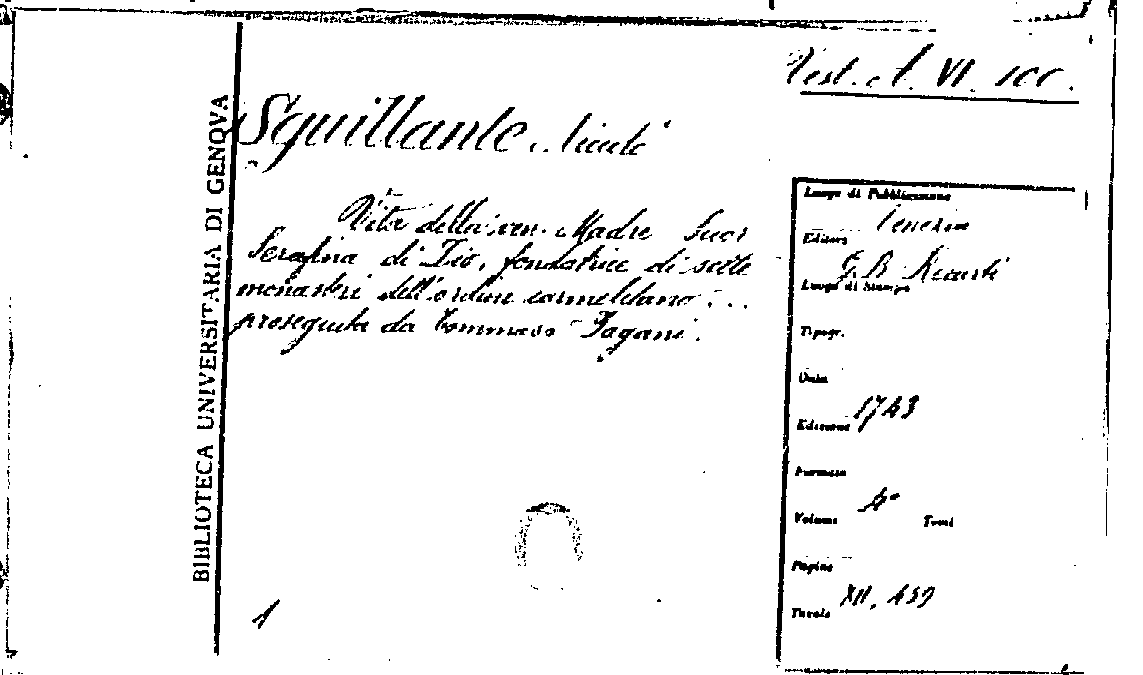 Vest. A. VI. 100.
BIBLIOTECA UNIVERSITARIA DI GENOVA
Squillante Nicolò
Vita della ven. Madre Suor
Serafina di Dio, fondatrice di sette
monasteri dell'ordine carmelitano...
proseguita da Tommaso Pagani.
1
Luogo di Pubblicazione
Venezia
Editore
G. B. Recurti
Luogo di Stampa
Tipogr.
Data
1743
Edizione
Formato
4°
Volume
Tomi
Pagine
XII, 439
Tavole